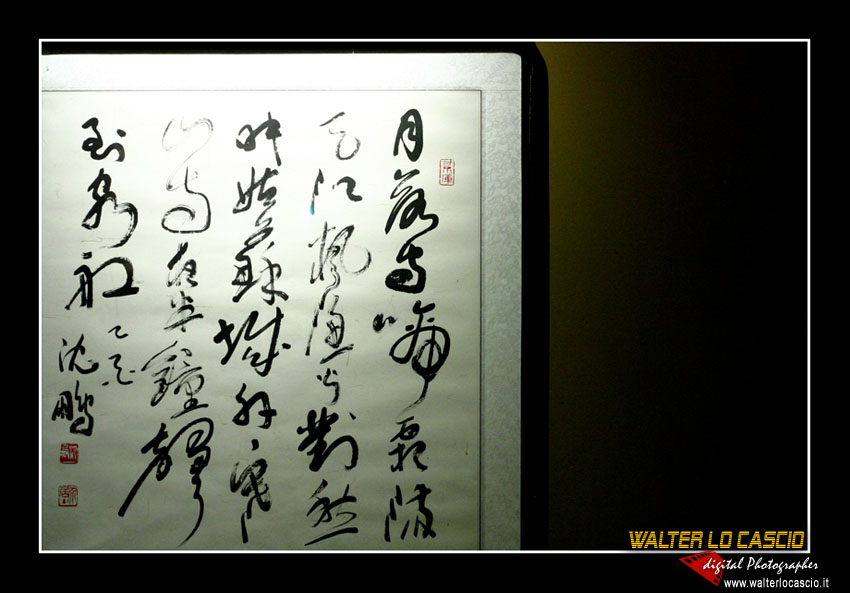 月落烏啼霜滿
天江楓漁火對愁
眠姑蘇城外寒
山寺夜半鐘聲
到客船
乙亥
沈鵬
WALTER LO CASCIO
digital Photographer
www.walterlocascio.it